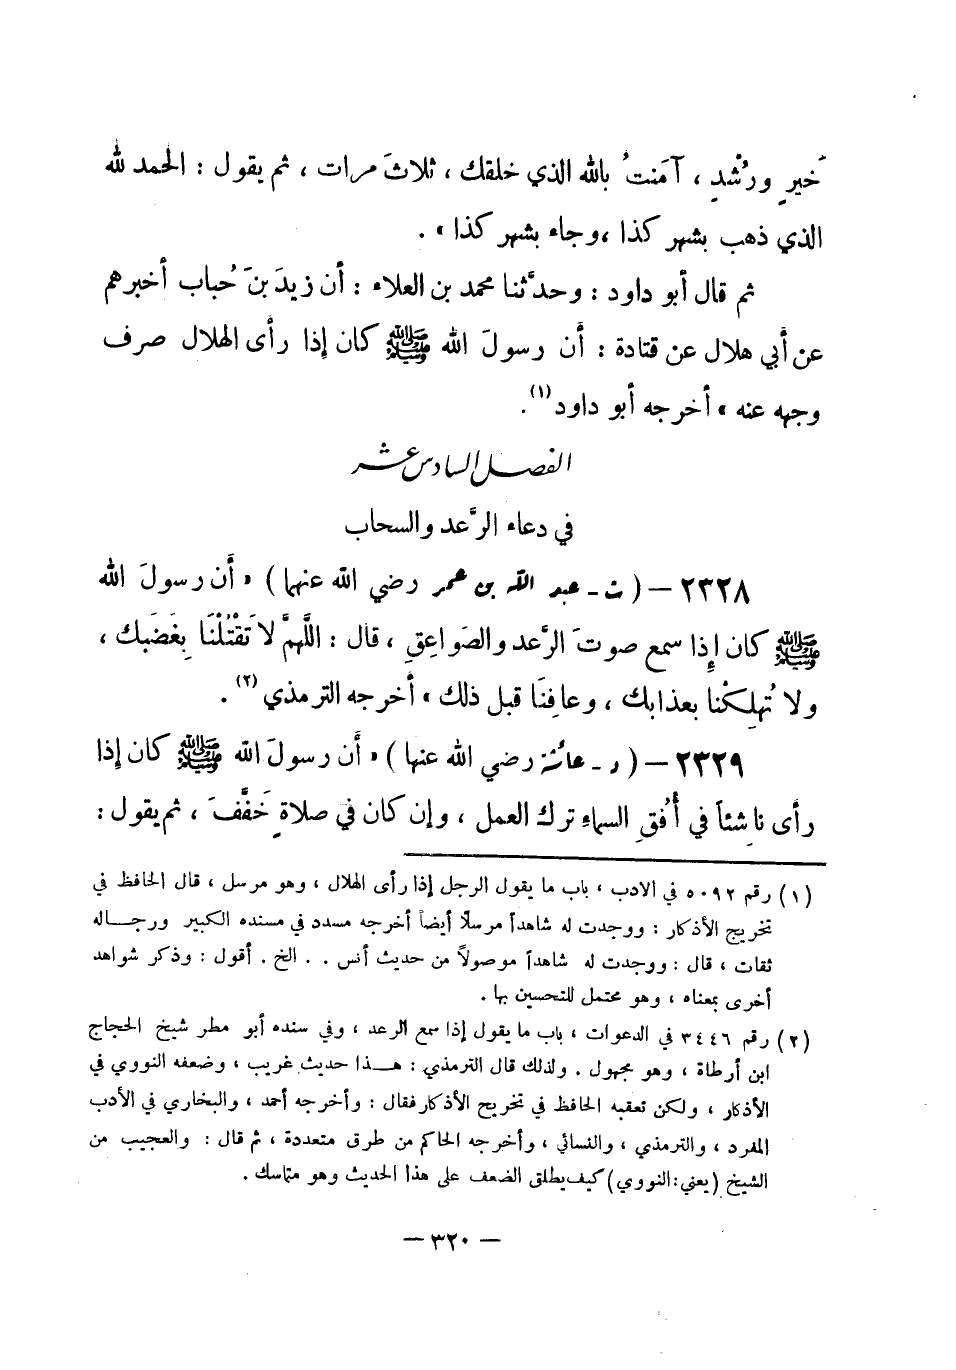 خَيرٍ ورُشْدٍ ، آمَنتُ بالله الذي خلقك ، ثلاثَ مرات ، ثم يقول : الحمد لله
الذي ذهب بشهر كذا ،وجاء بشهر كذا » .
ثم قال أبو داود : وحدَّثنا محمد بن العلاء : أن زيدَ بنَ حُباب أخبرهم
عن أبي هلال عن قتادة : أن رسولَ الله ﷺ كان إذا رأى الهلال صرف
وجهه عنه » أخرجه أبو داود(١).
الفصل السادس عشر
في دعاء الرَّعد والسحاب
٢٣٢٨ – ( ت ـ عبد الله بن عمر رضي الله عنهما ) « أن رسولَ الله
ﷺ كان إذا سمع صوتَ الرَّعد والصَواعِقِ ، قال : اللَّهمَّ لا تَقْتُلْنَا بِغَضَبِك ،
ولا تُهلِكْنا بعذابك ، وعافِنَا قبل ذلك » أخرجه الترمذي (٢) .
٢٣٢٩ – ( د ـ عائشة رضي الله عنها ) « أن رسولَ الله ﷺ كان إذا
رأى ناشِئاً في أُفقِ السماءِ ترك العمل ، وإن كان في صلاةٍ خَفَّفَ ، ثم يقول :
(١) رقم ٥٠٩٢ في الادب ، باب ما يقول الرجل إذا رأى الهلال ، وهو مرسل ، قال الحافظ في
تخريج الأذكار : ووجدت له شاهداً مرسلاً أيضاً أخرجه مسدد في مسنده الكبير ورجاله
ثقات ، قال : ووجدت له شاهداً موصولاً من حديث أنس . . الخ . أقول : وذكر شواهد
أخرى بمعناه ، وهو محتمل للتحسين بها .
(٢) رقم ٣٤٤٦ في الدعوات ، باب ما يقول إذا سمع الرعد ، وفي سنده أبو مطر شيخ الحجاج
ابن أرطاة ، وهو مجهول . ولذلك قال الترمذي : هذا حديث غريب ، وضعفه النووي في
الأذكار ، ولكن تعقبه الحافظ في تخريج الأذكار فقال : وأخرجه أحمد ، والبخاري في الأدب
المفرد ، والترمذي ، والنسائي ، وأخرجه الحاكم من طرق متعددة ، ثم قال : والعجيب من
الشيخ (يعني:النووي) كيف يطلق الضعف على هذا الحديث وهو متماسك .
– ٣٢٠ –